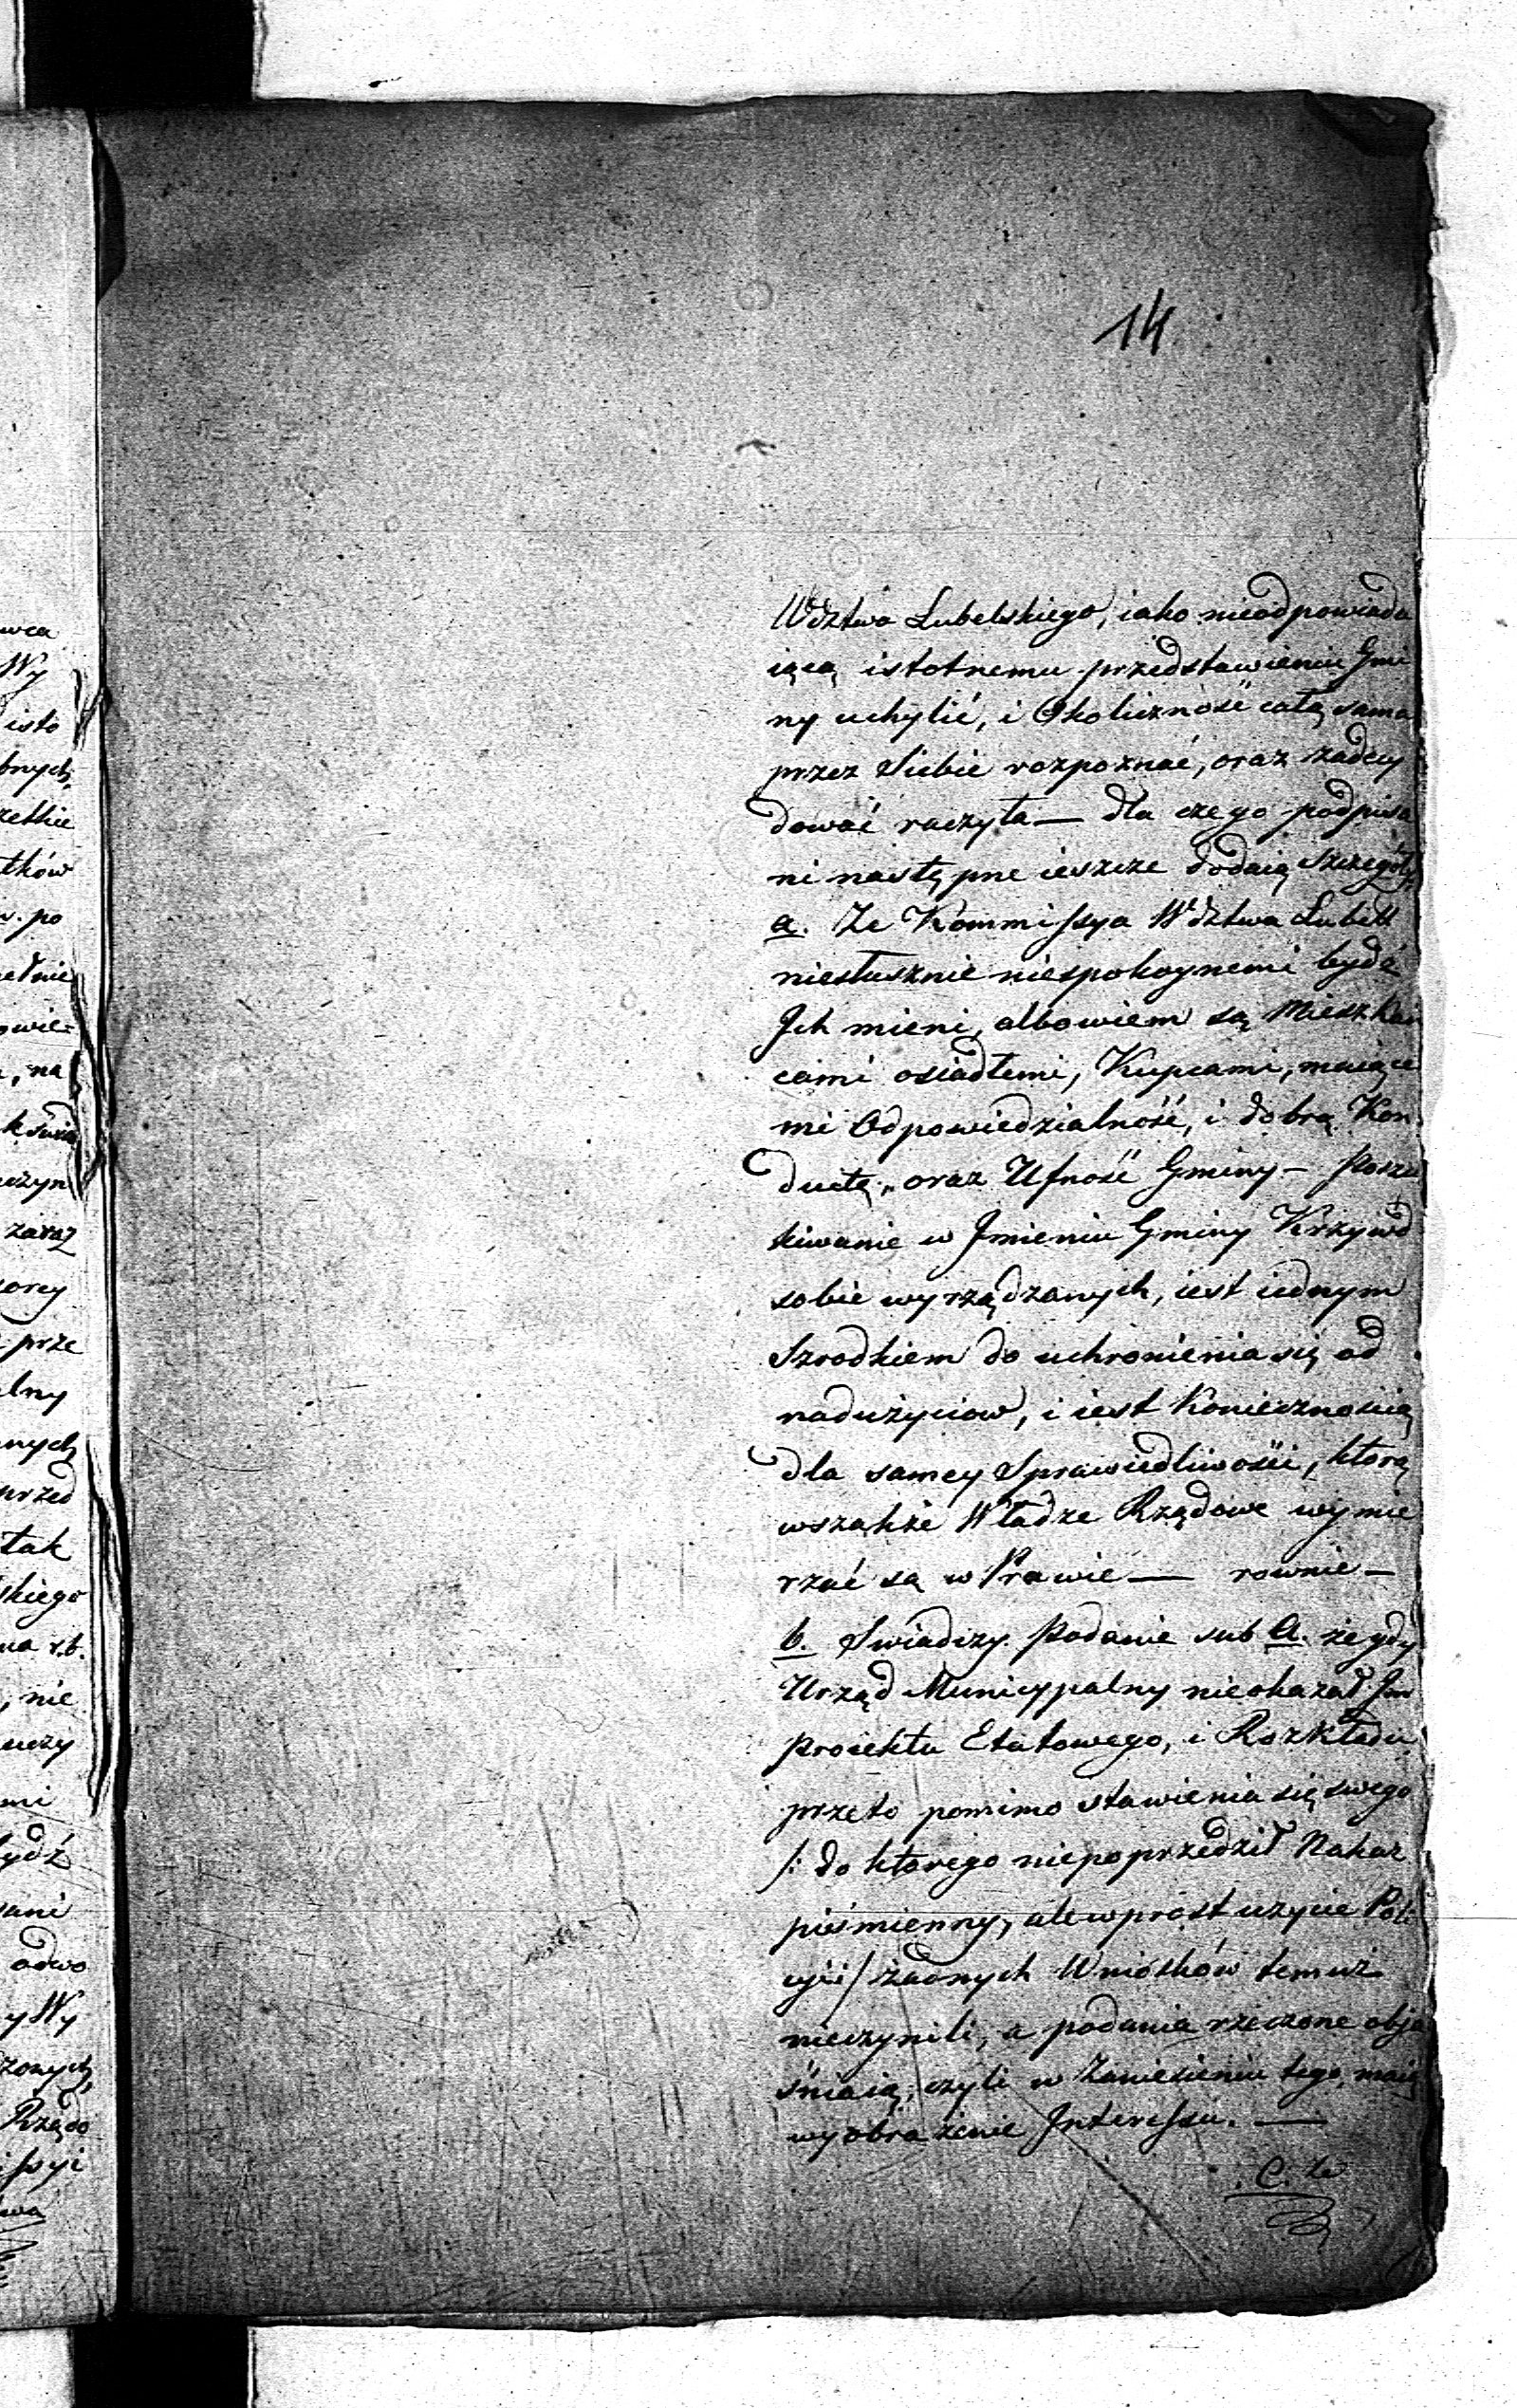 14
Wdztwa Lubelskiego, iako nieodpowiada
iącą istotnemu przedstawieniu Gmi
ny uchylić, i Okoliczność całą sama
przez Siebie rozpoznać, oraz zadecy
dować raczyła — dla czego podpisa
ni następne ieszcze dodaią Szczegóły,
a. Ze Kommissya Wdztwa Lubell
niesłusznie niespokoynemi bydź
Ich mieni, albowiem są Mieszkań
cami osiadłemi, Kupcami, maiące
mi Odpowiedzialność, i dobrą Kon
ductę, oraz Ufność Gminy — Poszu
kiwanie w Imieniu Gminy Krzywd
sobie wyrządzanych, iest iednym
Szrodkiem do uchronienia się od
nadużyciow, i iest Koniecznością
dla samey Sprawiedliwości, którą
wszakże Władze Rządowe wymie
rzać są w Prawie — rownie —
b. Swiadczy Podanie sub A. że gdy
Urząd Municypalny nieokazał Im
Proiektu Etatowego, i Rozkładu
przeto pomimo stawienia się swego
/: do ktorego niepoprzedził Nakaz
piśmienny, ale wprost użycie Poli
cyi / żadnych Wniosków temuż
nieczynili, a podania rzeczone obja
śniaią, czyli w Zaniesieniu tego maią
wyobrażenie Interessu. —
C. Ze
wca
Wy
isto
bnych,
tków
po
ełnie
owie=
, na
zaraz
prze
alny
nych
przed
tak
skiego
na r.b.
, nie
mi
bydź
sani
odwo
y Wy
zonych,
Rządo
issyi
twa